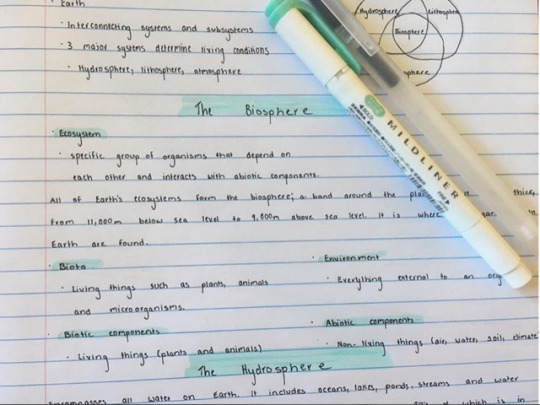 Earth
· Interconnecting systems and subsystems
· 3 major systems determine living conditions
· Hydrosphere, lithosphere, atmosphere
Hydrosphere
Biosphere
MILDLINER
The Biosphere
· Ecosystem
· specific group of organisms that depend on
each other and interacts with abiotic components.
All of Earth's ecosystems form the biosphere; a band around the
from 11,000m below sea level to 9,000m above sea level. It is where
Earth are found.
· Biota
· Living things such as plants, animals
and microorganisms.
· Environment
· Everything external to an
· Biotic components
· Living things (plants and animals)
· Abiotic components
· Non-living things (air, water, soil, climate
The Hydrosphere
Encompasses all water on Earth. It includes oceans, lakes, ponds, streams and water
which is in